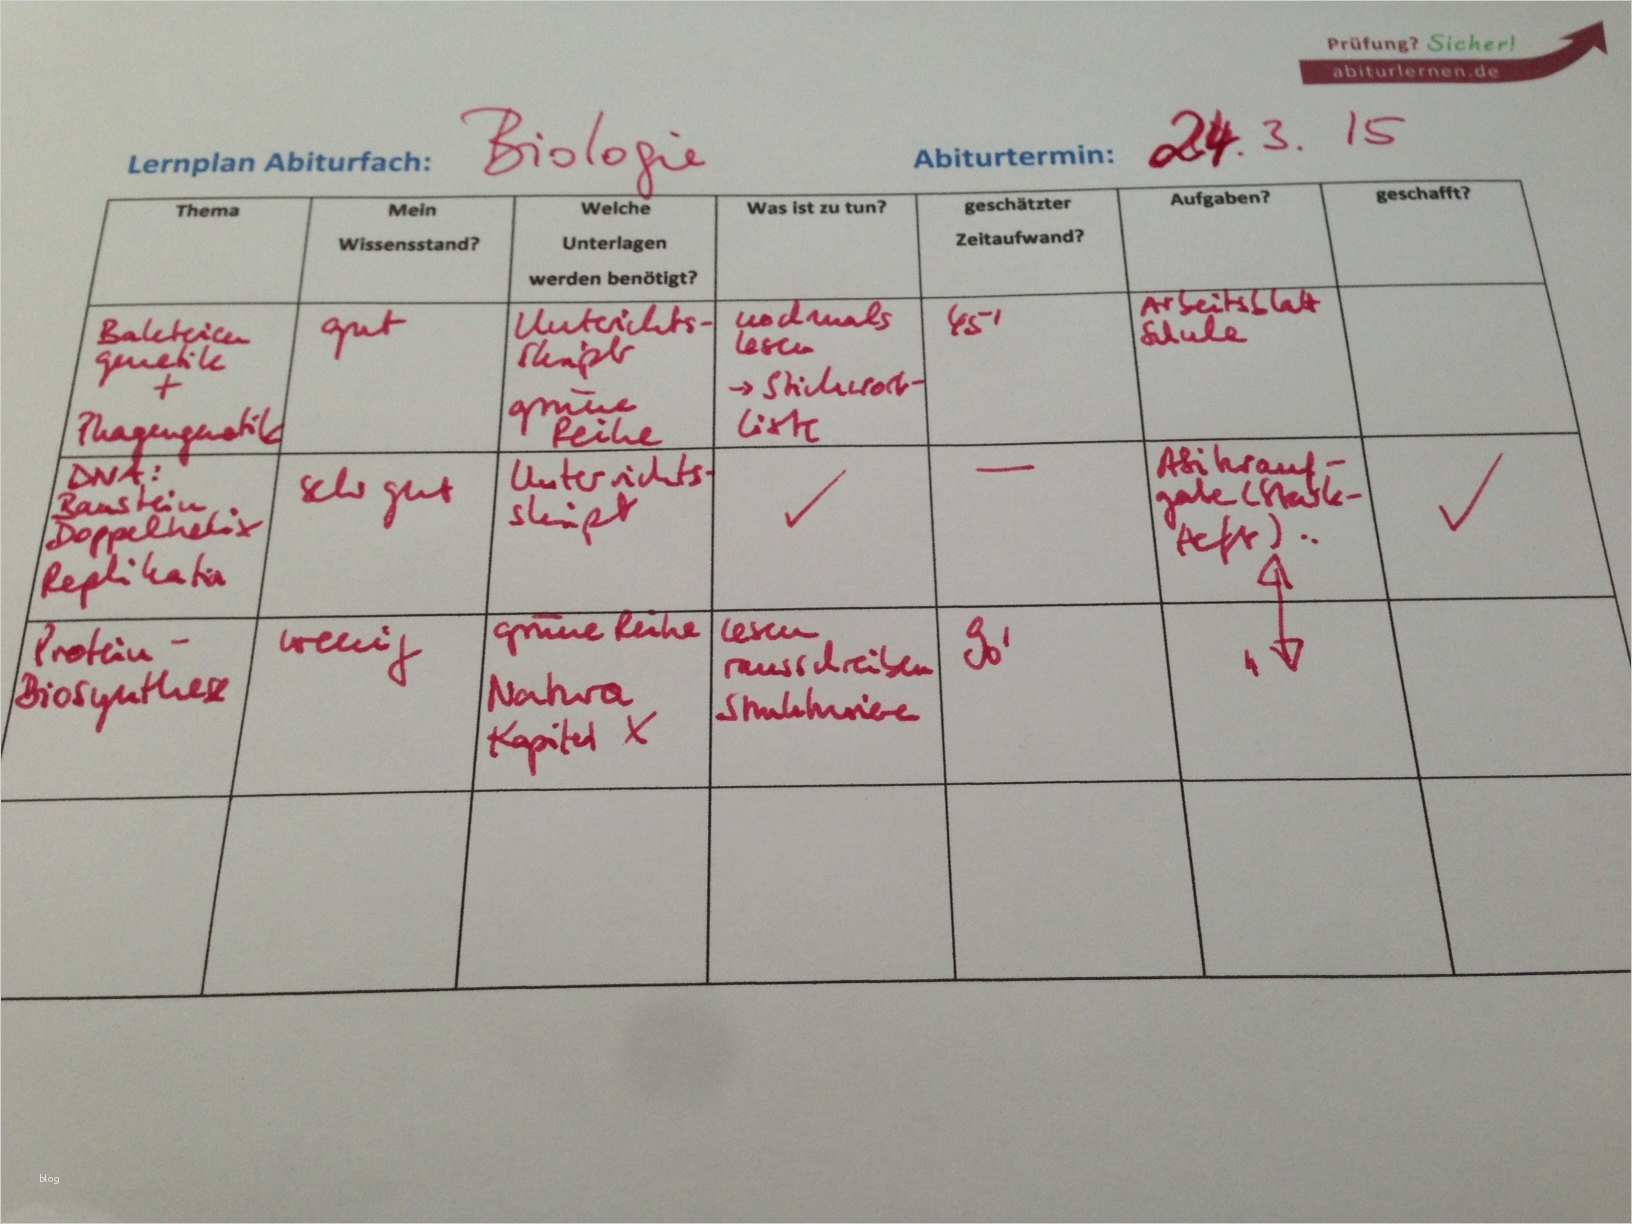 Prüfung? Sicher!
abiturlernen.de
Lernplan Abiturfach: Biologie
Abiturtermin: 24. 3. 15
Thema
Mein
Wissensstand?
Welche
Unterlagen
werden benötigt?
Was ist zu tun?
geschätzter
Zeitaufwand?
Aufgaben?
geschafft?
Bakterien
genetik
+
Phagengenetik
gut
Unterrichts-
skript
grüne
Reihe
nochmals
lesen
→ Stichwort-
liste
45'
Arbeitsblatt
Schule
DNA:
Baustein,
Doppelhelix
Replikation
sehr gut
Unterrichts-
skript
✓
—
Abiturauf-
gabe (Stark-
Heft) ..
✓
Protein-
Biosynthese
wenig
grüne Reihe
Natura
Kapitel X
lesen
rausschreiben
Strukturiere
90'
blog